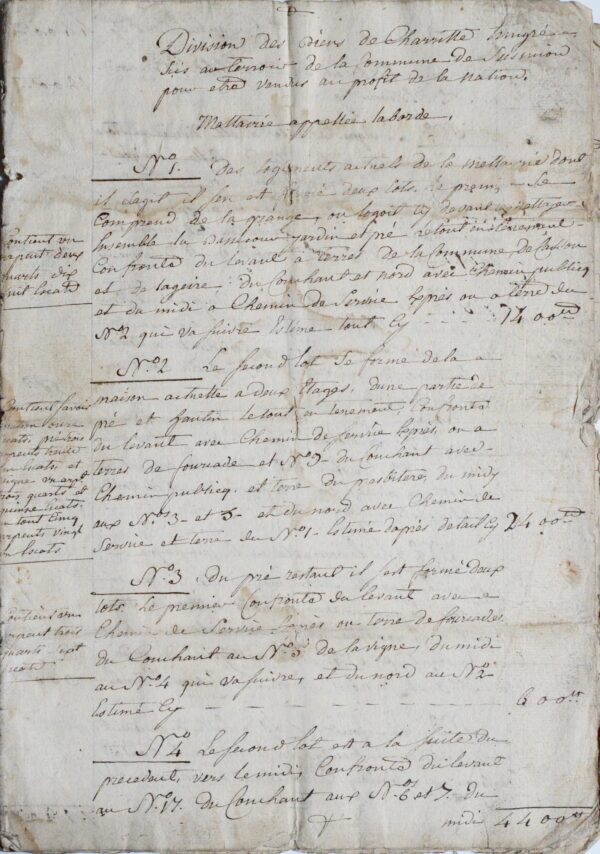 Division des Biens de Charritte Emigré
Sis au terroir de la Commune de
pour etre vendus au profit de la nation.
Mettairie appellée laborde.
N.º 1. Des logements actuels de la mettairie dont
il s'agit il s'en est formé deux lots. Le premier Se
Comprend de la grange, ou logoit cy devant le mettayer
Ensemble la Bassecour jardin et pré le tout
Confronte du levant a terres de la Commune de
et de lageire. du Couchant et nord avec Chemin publicq
et du midi a Chemin de Servie après ou a terre du
Nº2 qui va suivre Estime tout Cy - - - 1400
Contient un
arpent deux
quarts dix
huit locats
Nº.2 Le second lot Se forme de la
maison actuelle a deux Etages, d'une partie de
pré et hautin le tout en tenement, Confronte
du levant avec Chemin de servie après ou a
terres de fourcade et Nº 9. du Couchant avec
Chemin publicq. et terre du presbitere, du midy
aux Nº.s 3 - et 5 - et du nord avec Chemin de
Servie et terre du Nº.1. Estimé d'après detail Cy 2400
Contient savoir
locats, pré trois
arpents huit
locats et
vigne un arpt
trois quarts et
quinze locats.
en tout Cinq
arpents vingt
un locats
Nº.3 Du pré restant il est formé deux
lots. Le premier Confronte du levant avec
Chemin de Servie après ou terre de fourcade.
du Couchant au Nº 5 de la vigne, du midi
au Nº.4 qui va suivre, et du nord au Nº2
Estimé Cy - - - - - - - 600
Contient un
arpent trois
quarts sept
locats
Nº.4 Le second lot est a la suite du
precedent, vers le midi, Confronte du levant
au Nº.17. du Couchant aux Nº.s 6 et 7. du
midi 4400